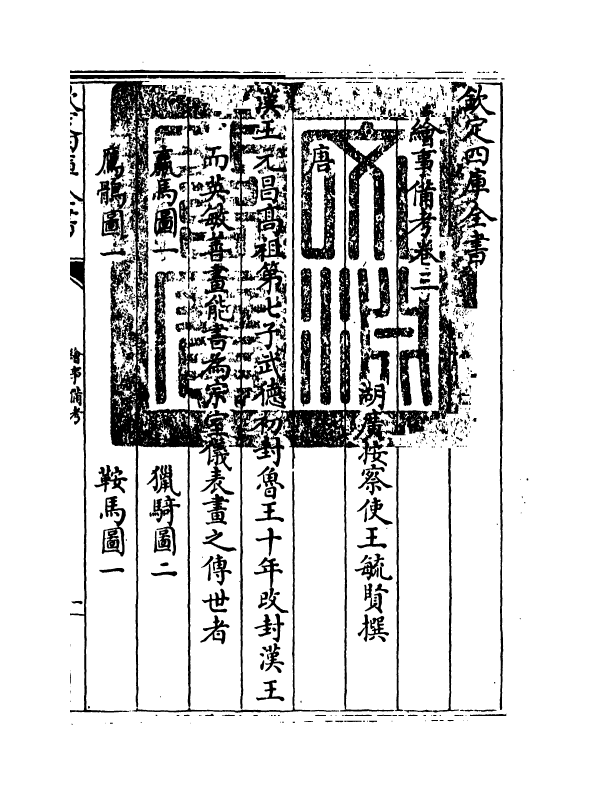 欽定四庫全書
繪事備考卷三
湖廣按察使王毓賢撰
唐
漢王元昌高祖第七子武德初封魯王十年改封漢王
而英敏善畫能書為宗室儀表畫之傳世者
羸馬圖一　獵騎圖二
鷹鶻圖一　鞍馬圖一
繪事備考